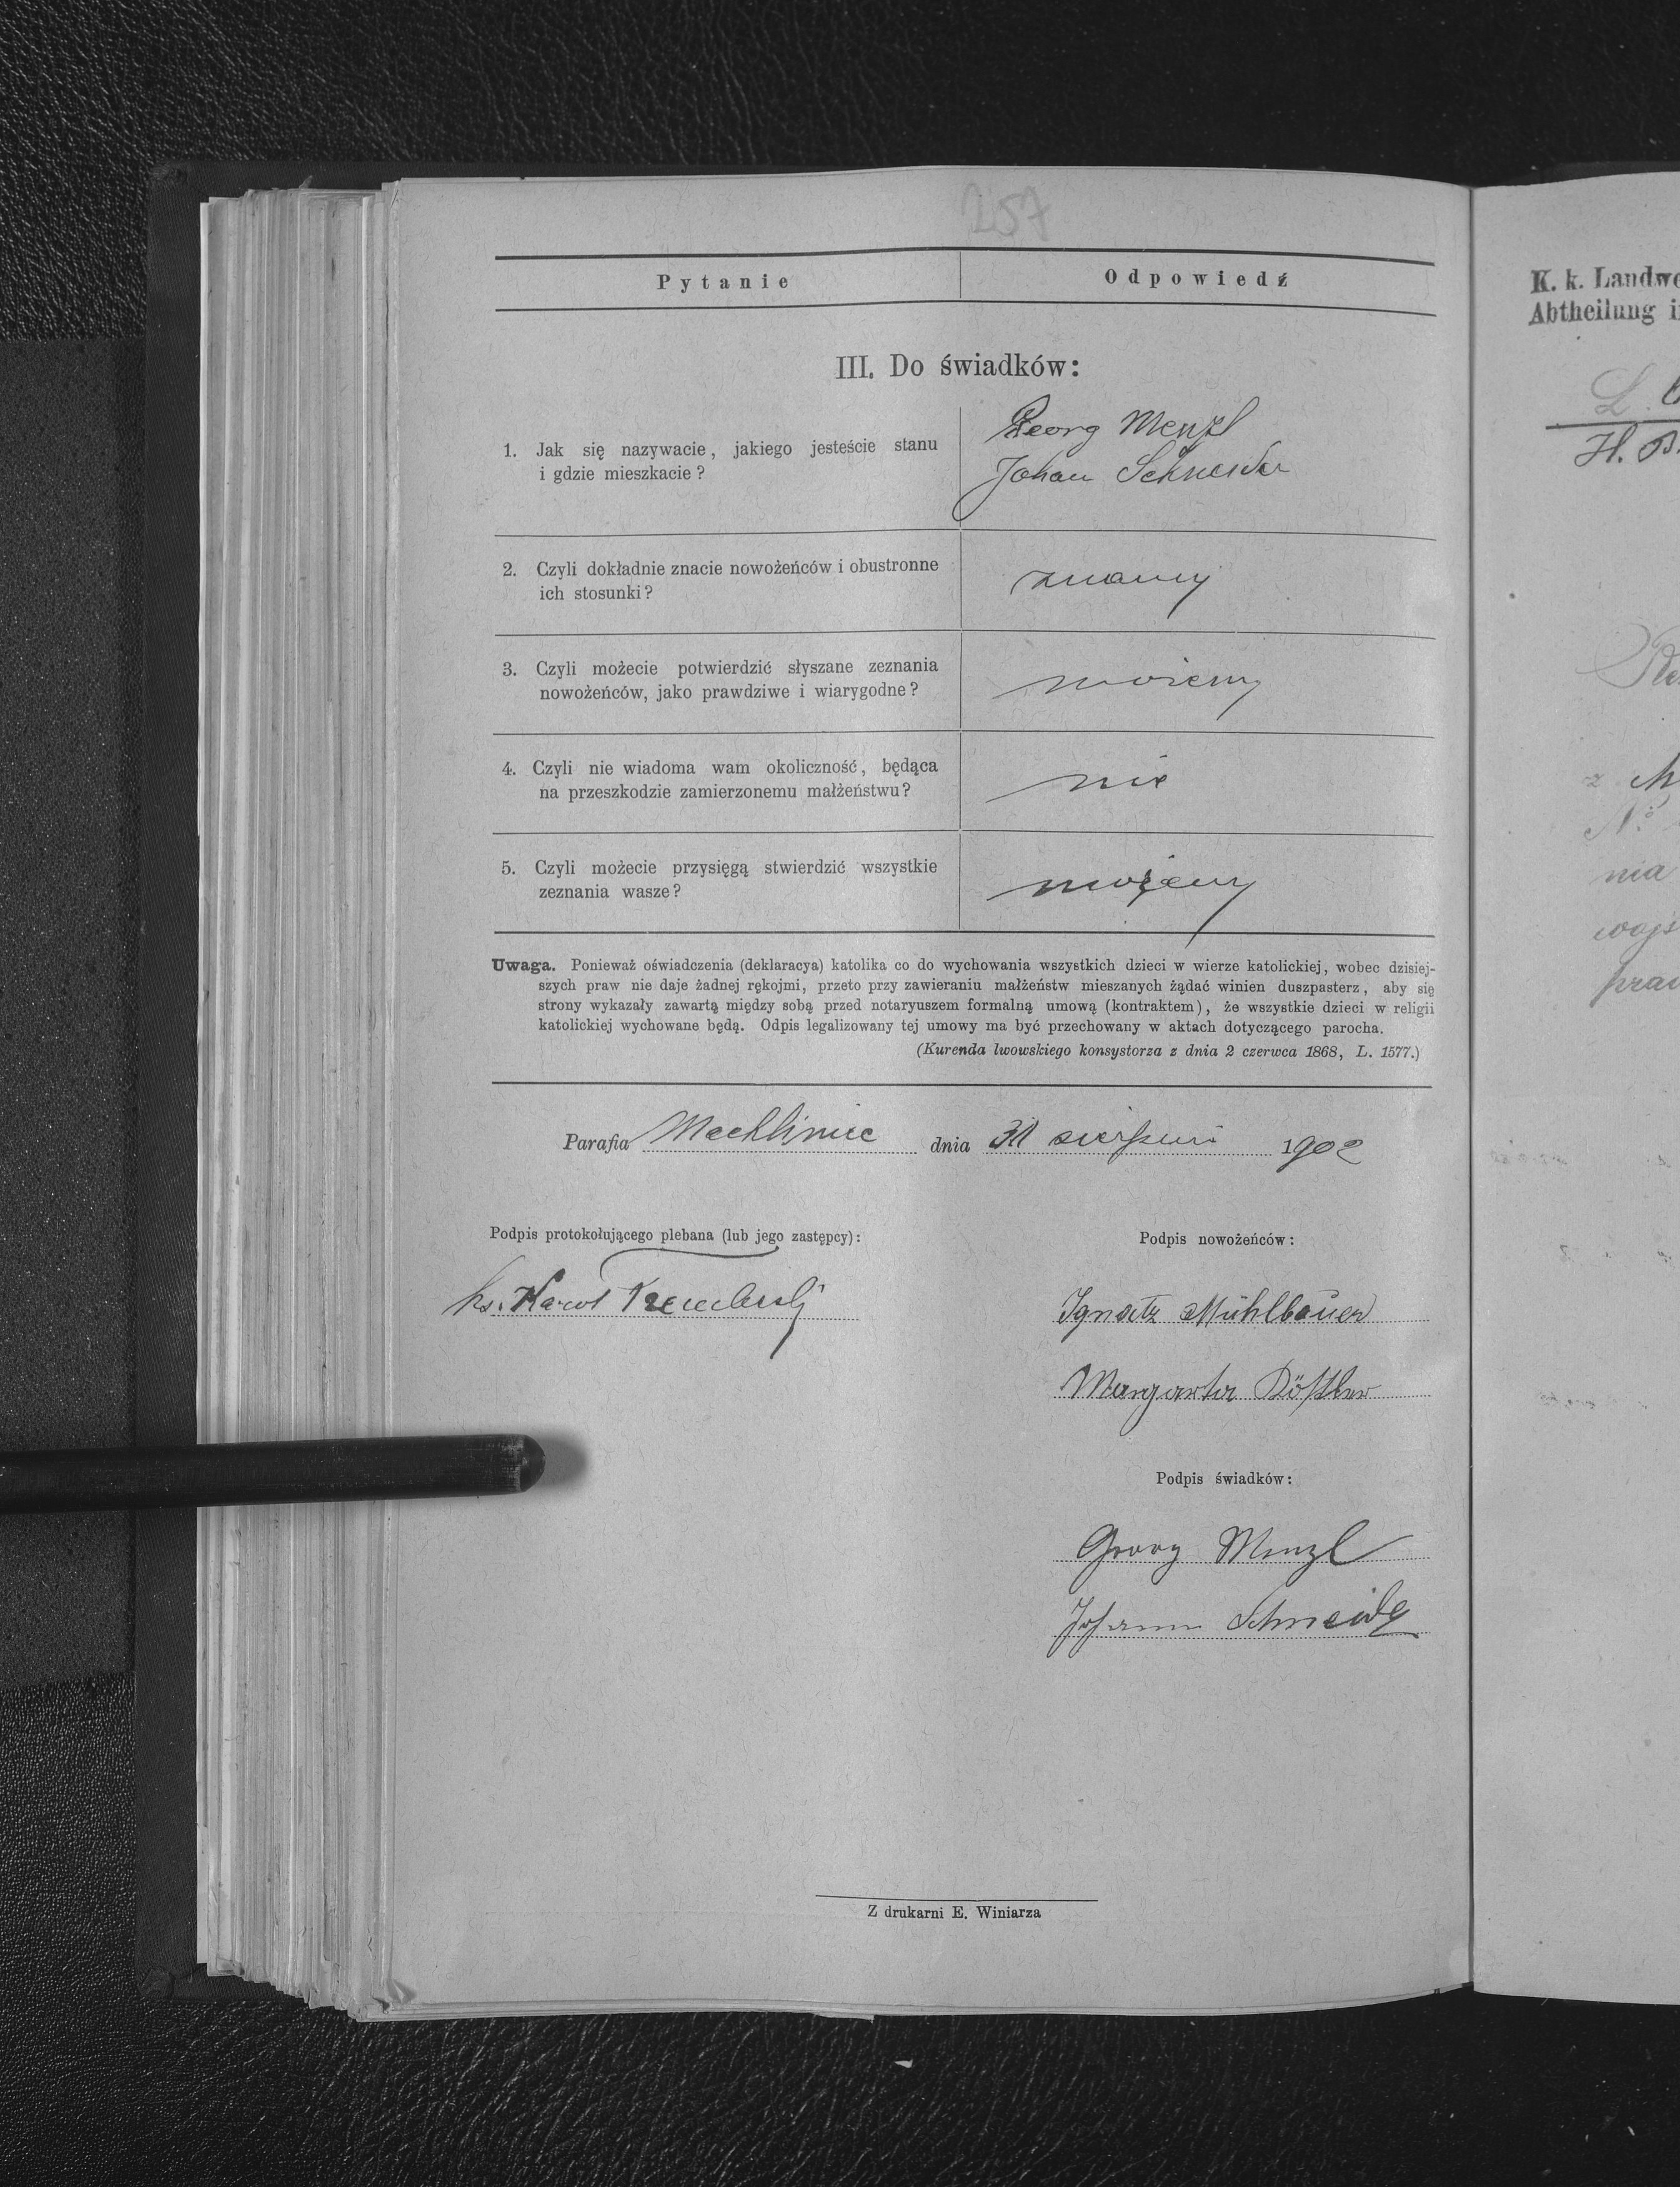 257
Pytanie
Odpowiedź
III. Do świadków:
1. Jak się nazywacie, jakiego jesteście stanu
i gdzie mieszkacie?
Georg Menzl
Johan Schneider
2. Czyli dokładnie znacie nowożeńców i obustronne
ich stosunki?
znamy
3. Czyli możecie potwierdzić słyszane zeznania
nowożeńców, jako prawdziwe i wiarygodne?
możemy
4. Czyli nie wiadoma wam okoliczność, będąca
na przeszkodzie zamierzonemu małżeństwu?
nie
5. Czyli możecie przysięgą stwierdzić wszystkie
zeznania wasze?
możemy
Uwaga. Ponieważ oświadczenia (deklaracya) katolika co do wychowania wszystkich dzieci w wierze katolickiej, wobec dzisiej-
szych praw nie daje żadnej rękojmi, przeto przy zawieraniu małżeństw mieszanych żądać winien duszpasterz, aby się
strony wykazały zawartą między sobą przed notaryuszem formalną umową (kontraktem), że wszystkie dzieci w religii
katolickiej wychowane będą. Odpis legalizowany tej umowy ma być przechowany w aktach dotyczącego parocha.
(Kurenda lwowskiego konsystorza z dnia 2 czerwca 1868, L. 1577.)
Parafia Machliniec dnia 31 sierpnia 1902
Podpis protokołującego plebana (lub jego zastępcy):
ks. Karol
Podpis nowożeńców:
Ignatz Mühlbauer
Margarta Rößler
Podpis świadków:
Georg Menzl
Johann Schneider
Z drukarni E. Winiarza
K. k. Landwe
Abtheilung i
L.
H. B.
z M
No
nia
wojs
praw